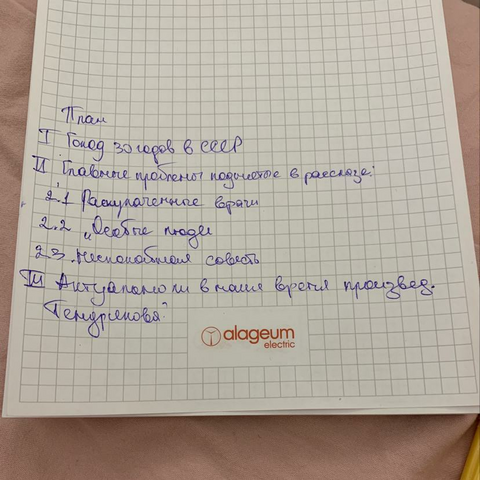 План
I Голод 30 годов в СССР
II Главные проблемы поднятые в рассказе:
2.1 Раскулаченные враги
2.2 „Особые люди
2.3. Неспокойная совесть
III Актуально ли в наше время произвед.
Тендрякова?
alageum
electric